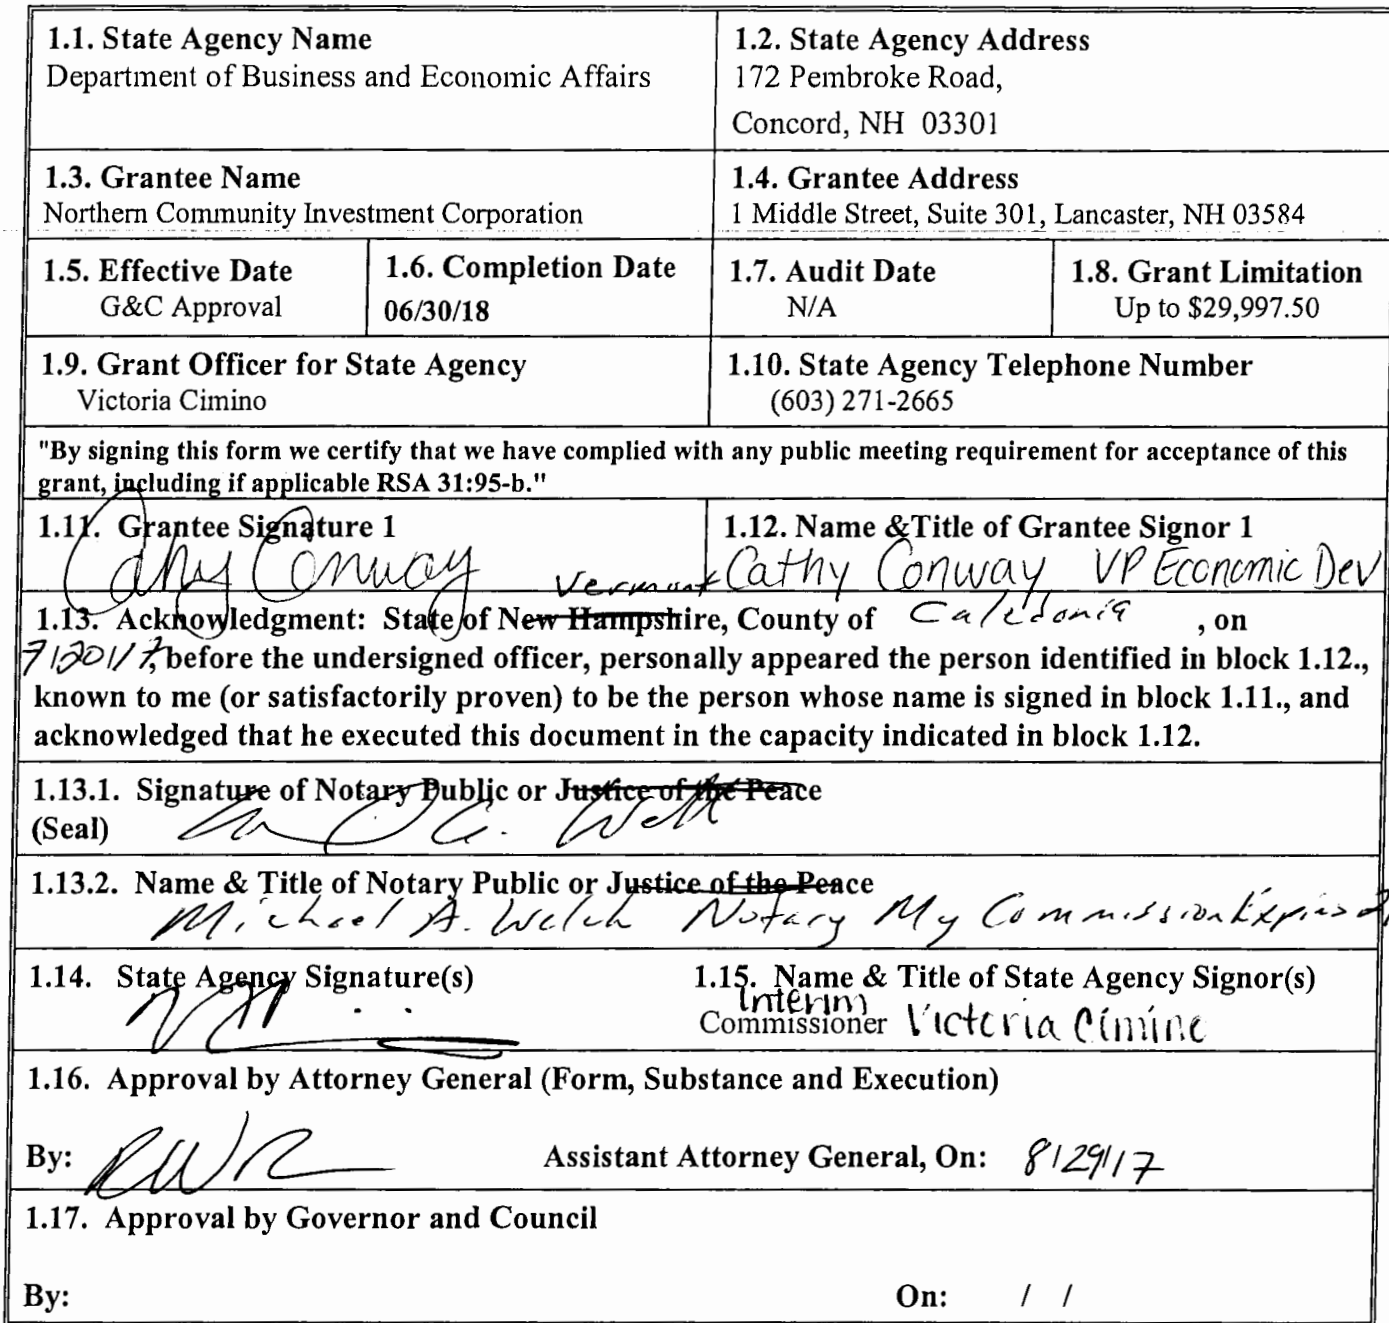 1.1. State Agency Name
Department of Business and Economic Affairs
1.2. State Agency Address
172 Pembroke Road,
Concord, NH 03301
1.3. Grantee Name
Northern Community Investment Corporation
1.4. Grantee Address
1 Middle Street, Suite 301, Lancaster, NH 03584
1.5. Effective Date
G&C Approval
1.6. Completion Date
06/30/18
1.7. Audit Date
N/A
1.8. Grant Limitation
Up to $29,997.50
1.9. Grant Officer for State Agency
Victoria Cimino
1.10. State Agency Telephone Number
(603) 271-2665
"By signing this form we certify that we have complied with any public meeting requirement for acceptance of this
grant, including if applicable RSA 31:95-b."
1.11. Grantee Signature 1
Cathy Conway
1.12. Name &Title of Grantee Signor 1
Cathy Conway VP Economic Dev
Vermont
1.13. Acknowledgment: State of New Hampshire, County of Caledonia , on
7/20/17, before the undersigned officer, personally appeared the person identified in block 1.12.,
known to me (or satisfactorily proven) to be the person whose name is signed in block 1.11., and
acknowledged that he executed this document in the capacity indicated in block 1.12.
1.13.1. Signature of Notary Public or Justice of the Peace
(Seal)
1.13.2. Name & Title of Notary Public or Justice of the Peace
Michael A. Welch Notary My Commission Expires
1.14. State Agency Signature(s)
1.15. Name & Title of State Agency Signor(s)
Interim
Commissioner Victoria Cimino
1.16. Approval by Attorney General (Form, Substance and Execution)
By: Assistant Attorney General, On: 8/29/17
1.17. Approval by Governor and Council
By: On: / /